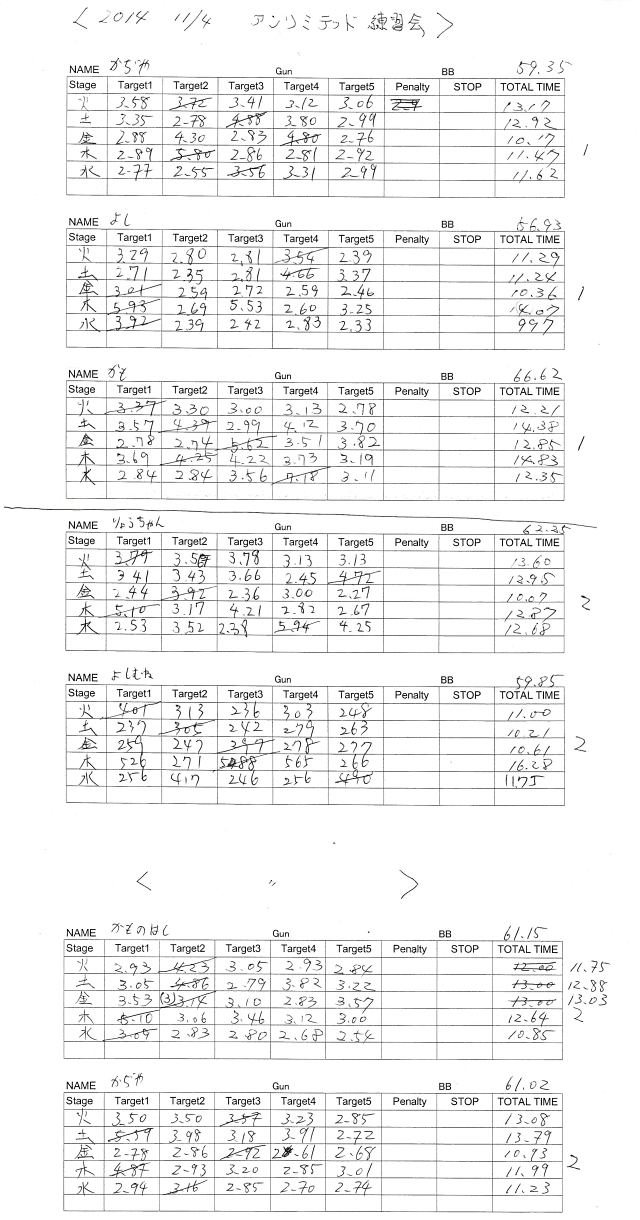 ＜2014 11/4 アンリミテッド 練習会＞
NAME かぢや Gun BB 59.35
Stage Target1 Target2 Target3 Target4 Target5 Penalty STOP TOTAL TIME
火 3.58 3.72 3.41 3.12 3.06 13.17
土 3.35 2.78 4.88 3.80 2.99 12.92
金 2.88 4.30 2.83 4.80 2.76 10.17
木 2.89 5.80 2.86 2.81 2.92 11.47 1
水 2.77 2.55 3.56 3.31 2.99 11.62
NAME よし Gun BB 56.93
Stage Target1 Target2 Target3 Target4 Target5 Penalty STOP TOTAL TIME
火 3.29 2.80 2.81 3.54 2.39 11.29
土 2.71 2.35 2.81 4.66 3.37 11.24
金 3.01 2.59 2.72 2.59 2.46 10.36 1
木 5.93 2.69 5.53 2.60 3.25 14.07
水 3.92 2.39 2.42 2.83 2.33 9.97
NAME かも Gun BB 66.62
Stage Target1 Target2 Target3 Target4 Target5 Penalty STOP TOTAL TIME
火 3.37 3.30 3.00 3.13 2.78 12.21
土 3.57 4.39 2.99 4.12 3.70 14.38
金 2.78 2.74 5.62 3.51 3.82 12.85 1
木 3.69 4.25 4.22 3.73 3.19 14.83
水 2.84 2.84 3.56 7.18 3.11 12.35
NAME りょうちゃん Gun BB 62.25
Stage Target1 Target2 Target3 Target4 Target5 Penalty STOP TOTAL TIME
火 3.79 3.5 3.78 3.13 3.13 13.60
土 3.41 3.43 3.66 2.45 4.72 12.95
金 2.44 3.92 2.36 3.00 2.27 10.07 2
木 5.10 3.17 4.21 2.82 2.67 12.87
水 2.53 3.52 2.38 5.94 4.25 12.68
NAME よしむね Gun BB 59.85
Stage Target1 Target2 Target3 Target4 Target5 Penalty STOP TOTAL TIME
火 401 313 236 303 248 11.00
土 237 305 242 279 263 10.21
金 259 247 297 278 277 10.61 2
木 526 271 588 565 266 16.28
水 256 417 246 256 490 11.75
＜ 〃 ＞
NAME かものはし Gun BB 61.15
Stage Target1 Target2 Target3 Target4 Target5 Penalty STOP TOTAL TIME
火 2.93 4.23 3.05 2.93 2.84 12.00 11.75
土 3.05 4.86 2.79 3.82 3.22 13.00 12.88
金 3.53 (3)3.14 3.10 2.83 3.57 13.00 13.03
木 5.10 3.06 3.46 3.12 3.00 12.64 2
水 3.09 2.83 2.80 2.68 2.54 10.85
NAME かぢや Gun BB 61.02
Stage Target1 Target2 Target3 Target4 Target5 Penalty STOP TOTAL TIME
火 3.50 3.50 3.57 3.23 2.85 13.08
土 5.59 3.98 3.18 3.91 2.72 13.79
金 2.78 2.86 2.92 2.61 2.68 10.93 2
木 4.87 2.93 3.20 2.85 3.01 11.99
水 2.94 3.16 2.85 2.70 2.74 11.23